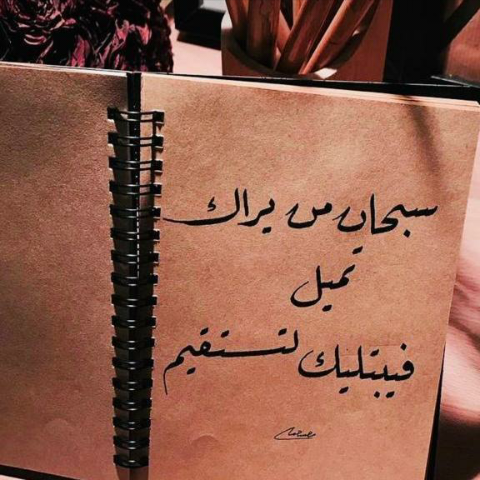 سبحان من يراك
تميل
فيبتليك لتستقيم